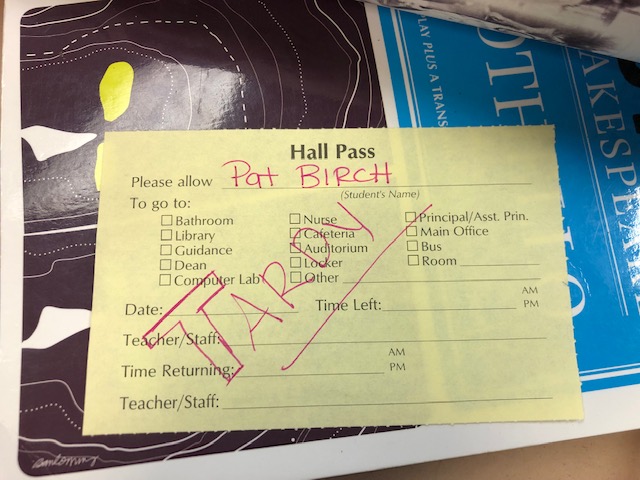 Hall Pass
Please allow Pat BIRCH
(Student's Name)
To go to:
☐ Bathroom ☐ Nurse ☐ Principal/Asst. Prin.
☐ Library ☐ Cafeteria ☐ Main Office
☐ Guidance ☐ Auditorium ☐ Bus
☐ Dean ☐ Locker ☐ Room
☐ Computer Lab ☐ Other
TARDY
Date: Time Left: AM
PM
Teacher/Staff:
Time Returning: AM
PM
Teacher/Staff:
AKESP
OTH LLO
LAY PLUS A TRANS